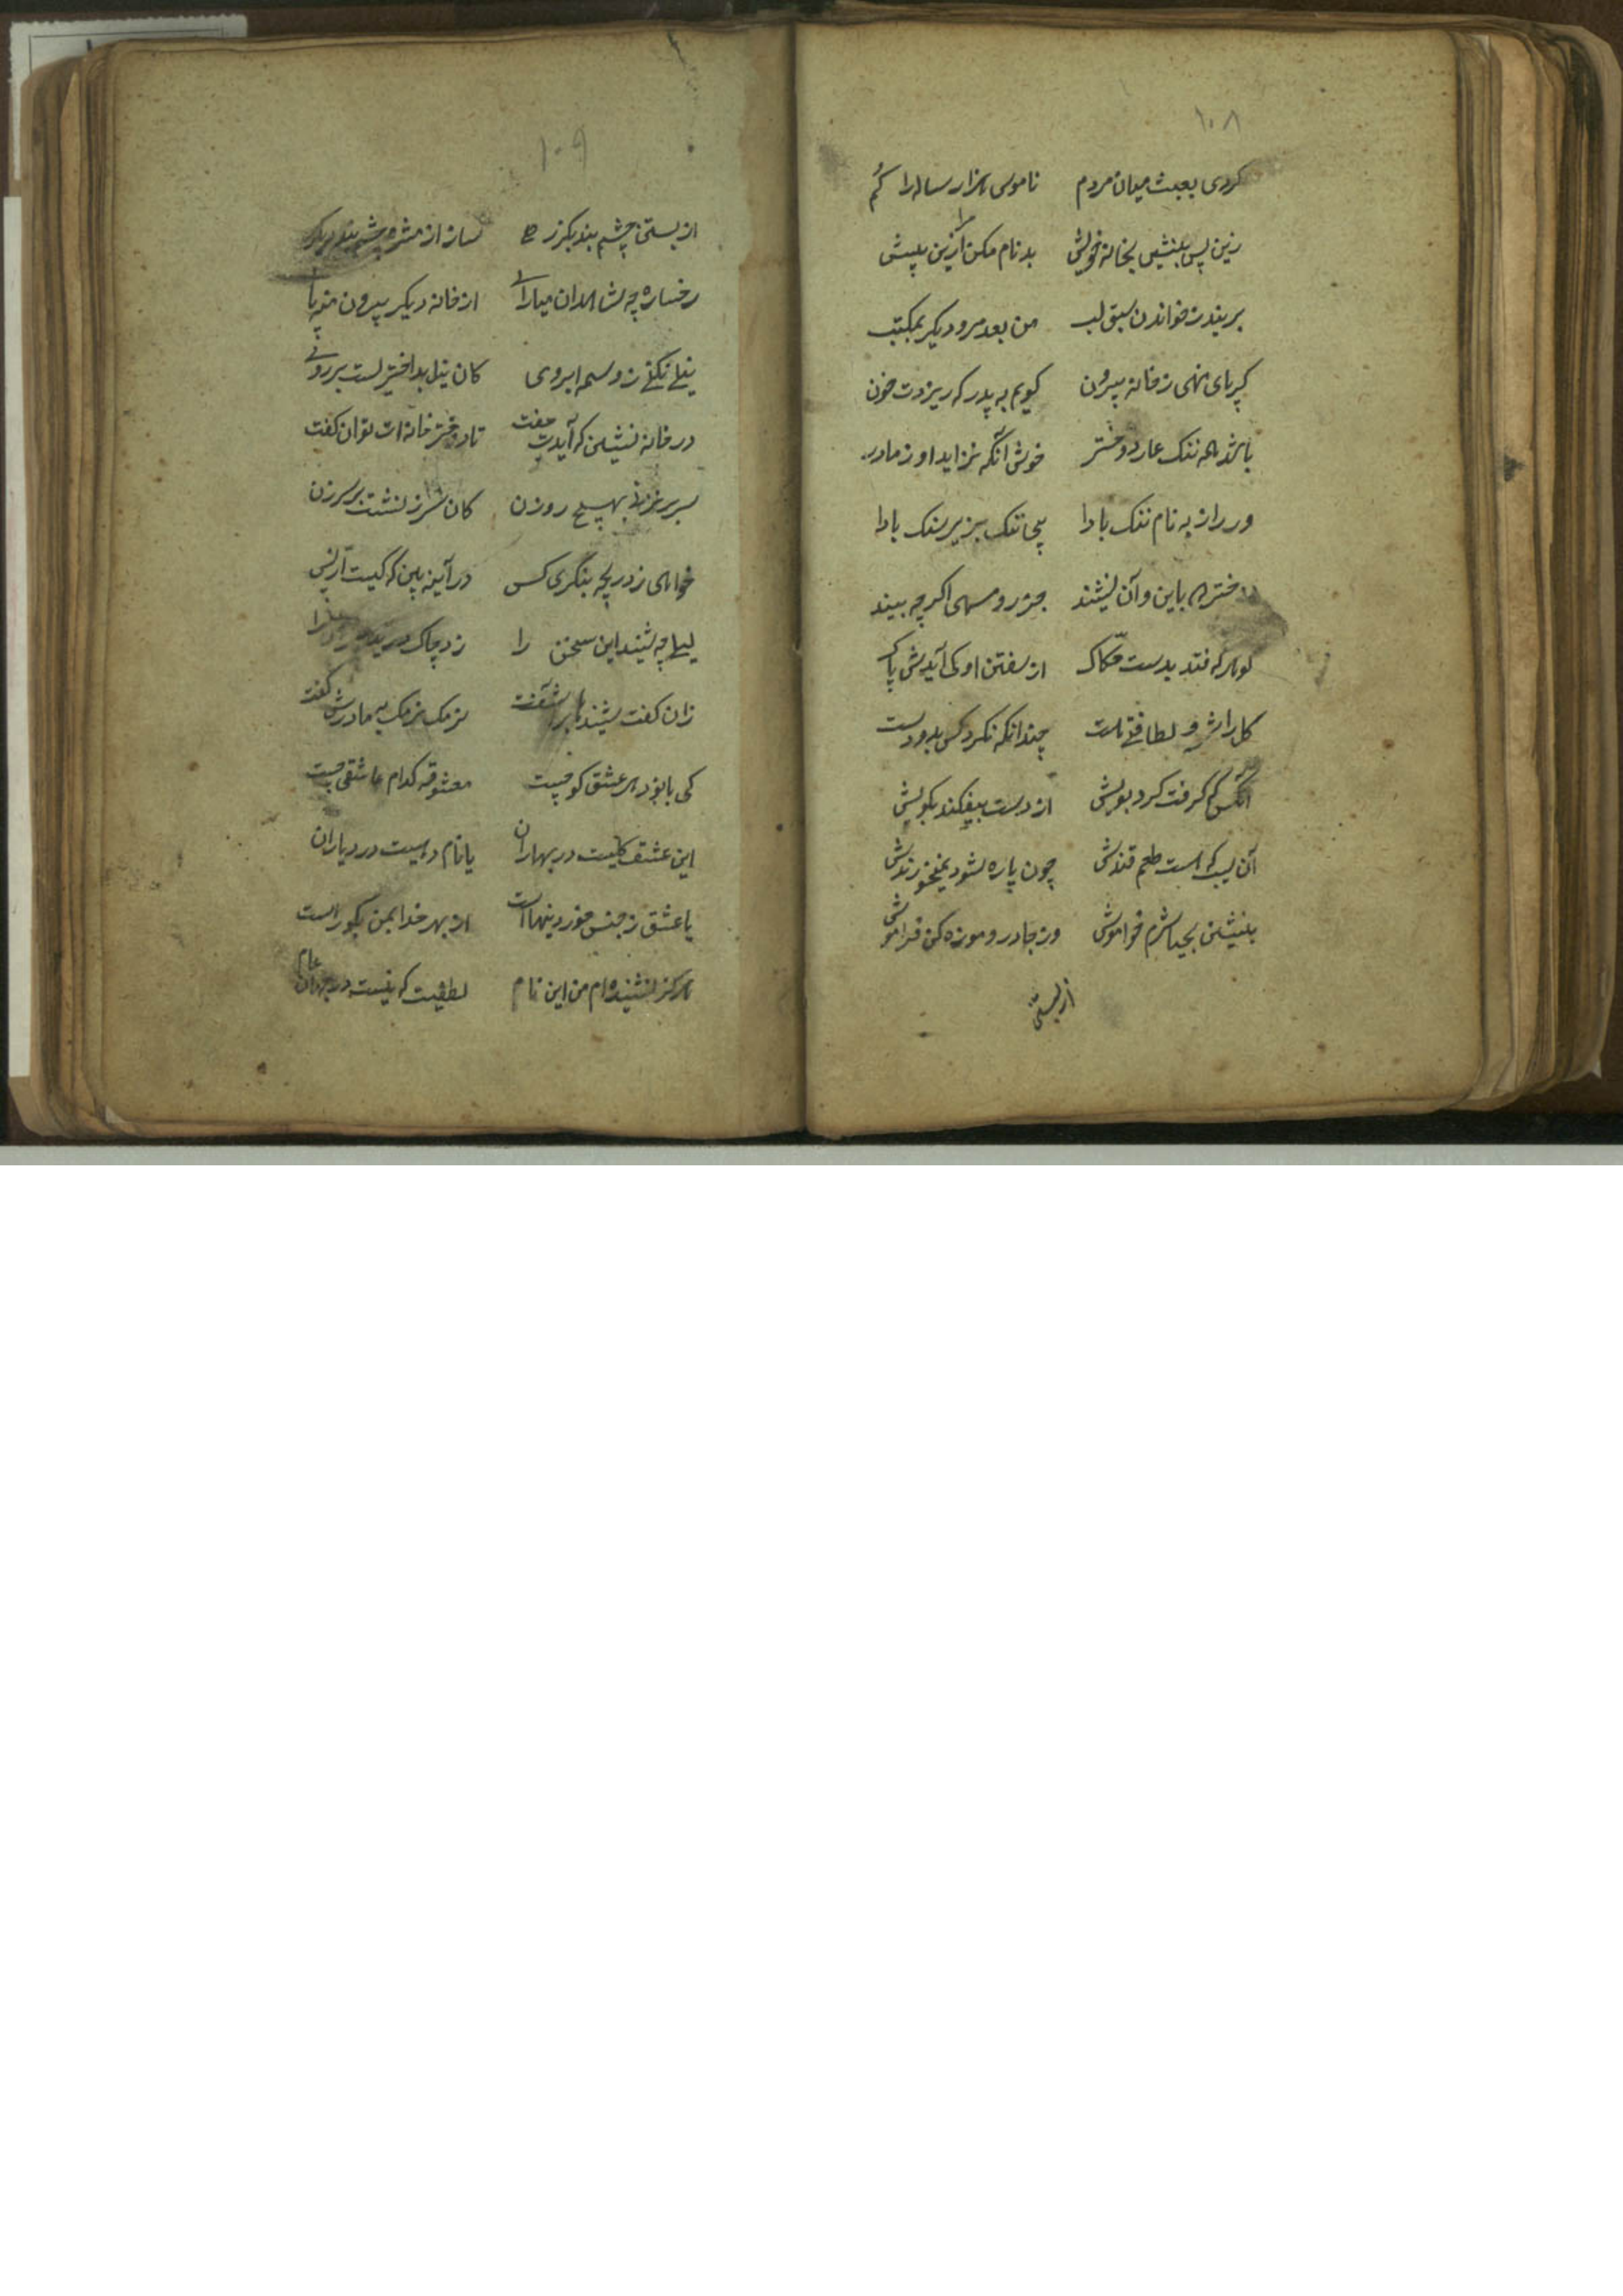 ۱۰۸
کردی بعبث میان مردم ناموس هزار ساله را گم
زین پس بنشین بخانهٔ خویش بدنام مکن مرا ازین بیش
بربند ز خواندن سبق لب من بعد مرو دیگر بمکتب
گر پای نهی ز خانه بیرون گویم به پدر که ریزدت خون
باشد همه ننگ عار دختر خوش آنکه نزاید او ز مادر
ور زاد به نام ننگ بادا بیجا ننگ بزیر سنگ بادا
دختر که باین و آن نشیند جز روسیهی اگر چه بیند
گوهر که فتد بدست حکاک از سفتن او کی آیدش پاک
گل را شرف و لطافتی هست چندانکه نکرد کس بدو دست
آنکس که گرفت کرد بویش از دست بیفکند بکویش
آن لب که است طعم قندش چون پاره شود نمیخورندش
بنشین بحیا شرم خو آموش وز چادر و موزه کن فراموش
از بستن
۱۰۹
از بستن چشم بند بگذر ساز از مژه چشم بند دیگر
رخساره چو شاهدان میارا از خانه دیگر بیرون منه پا
نیلی نکنی ز وسمه ابروی کان نیل بداختریست بر روی
در خانه نشین که آیدت جفت تا دختر خانه ات توان گفت
سر بر نزنی بهیچ روزن کان سرزنشت بر سر زن
خواهی ز دریچه بنگری کس در آینه بین که کیست از پس
لیلی چو شنید این سخن را زد چاک
زان گفت شنیدها بر آشفت نرمک نرمک به مادرش گفت
کی بانو دهر عشق کو چیست معشوقه کدام عاشقی چیست
این عشق گلیست در بهاران یا نام دهیست در دیاران
یا عشق ز جنس خوردنیهاست از بهر خدا بمن بگو راست
هرگز نشنیده ام من این نام لطفیست که نیست در جهان عام